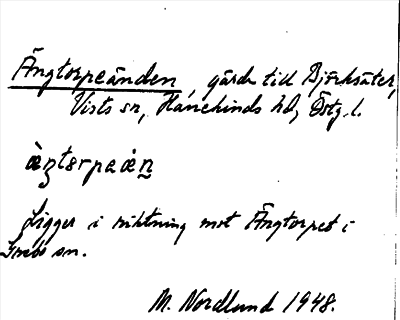 Ängtorpeänden, gärde till Björksäter,
Vists sn, Hanekinds hd, Östg. l.
Ligger i riktning mot Ängtorpet i
sn.
M. Nordlund 1948.